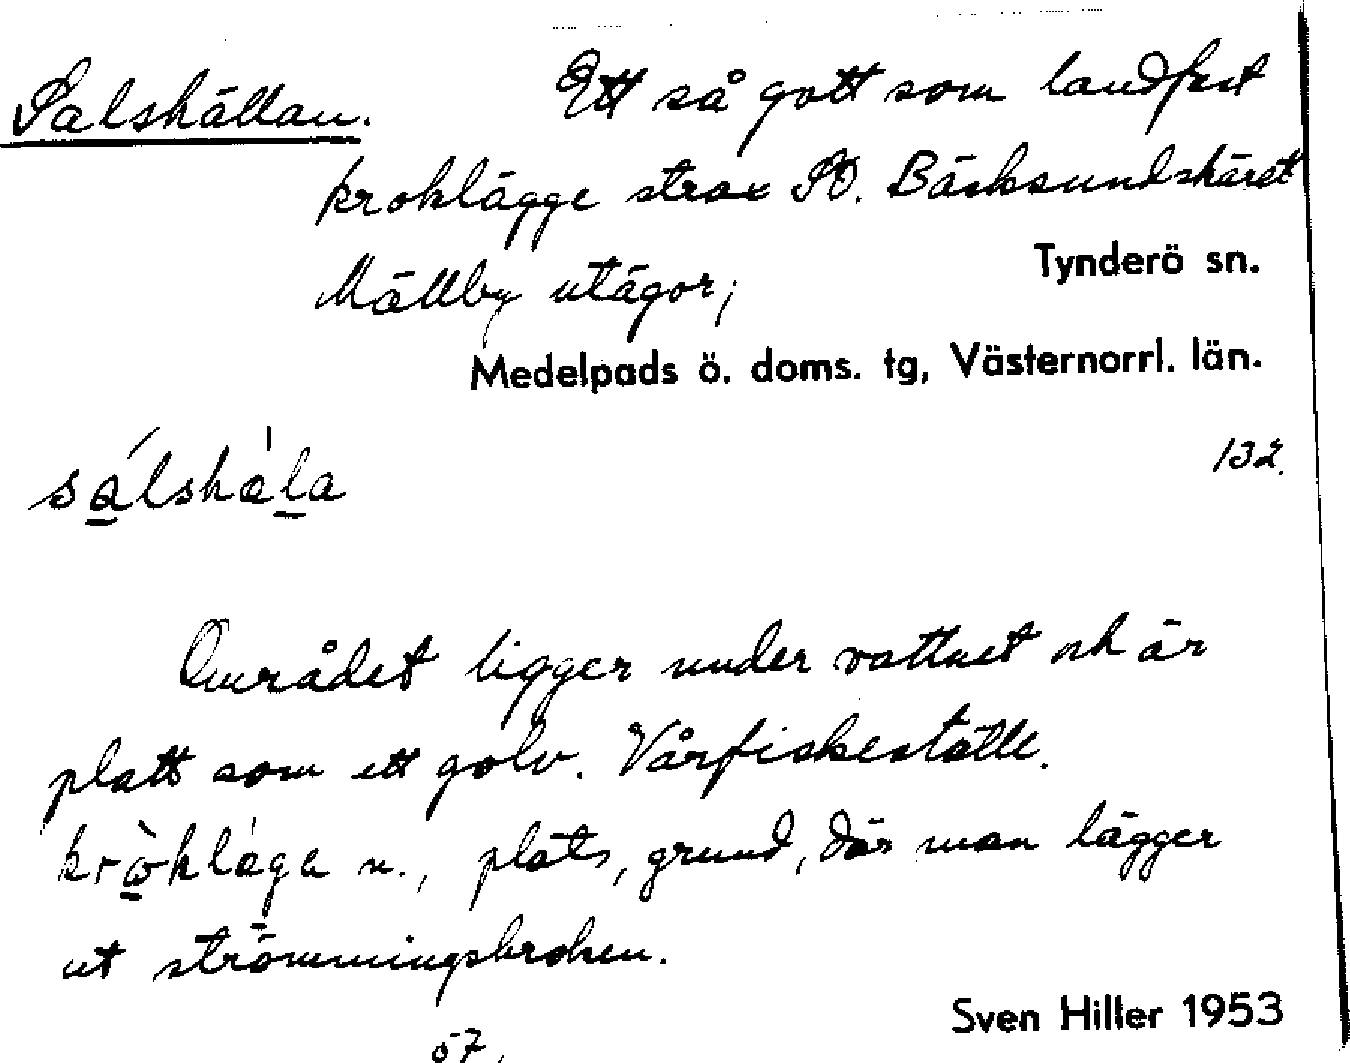 Salshällan. Ett så gott som landfast
kroklägge strax SO. Bäcksundskäret
Mällby utägor; Tynderö sn.
Medelpads ö. doms. tg, Västernorrl. län.
132.
sálshä̀la
Området ligger under vattnet och är
platt som ett golv. Vårfiskeställe.
kròkläga n., plats, grund, där man lägger
ut strömmingskroken.
Sven Hiller 1953
57.